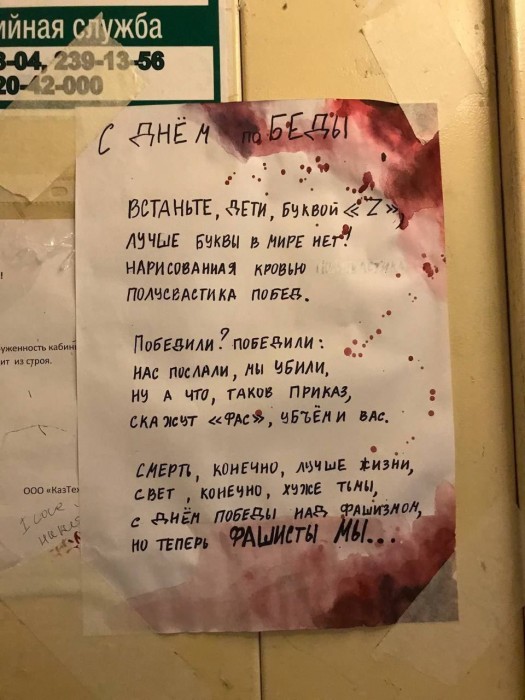 ийная служба
3-04, 239-13-56
20-42-000
С ДНЁМ поБЕДЫ
ВСТАНЬТЕ, ДЕТИ, БУКВОЙ «Z»,
ЛУЧШЕ БУКВЫ В МИРЕ НЕТ!
НАРИСОВАННАЯ КРОВЬЮ
ПОЛУСВАСТИКА ПОБЕД.
ПОБЕДИЛИ? ПОБЕДИЛИ:
НАС ПОСЛАЛИ, МЫ УБИЛИ,
НУ А ЧТО, ТАКОВ ПРИКАЗ,
СКАЖУТ «ФАС», УБЪЁМ И ВАС.
СМЕРТЬ, КОНЕЧНО, ЛУЧШЕ ЖИЗНИ,
СВЕТ, КОНЕЧНО, ХУЖЕ ТЬМЫ,
С ДНЁМ ПОБЕДЫ НАД ФАШИЗМОМ,
НО ТЕПЕРЬ ФАШИСТЫ МЫ...
!
уженность кабин
ит из строя.
ООО «КазТех
I love